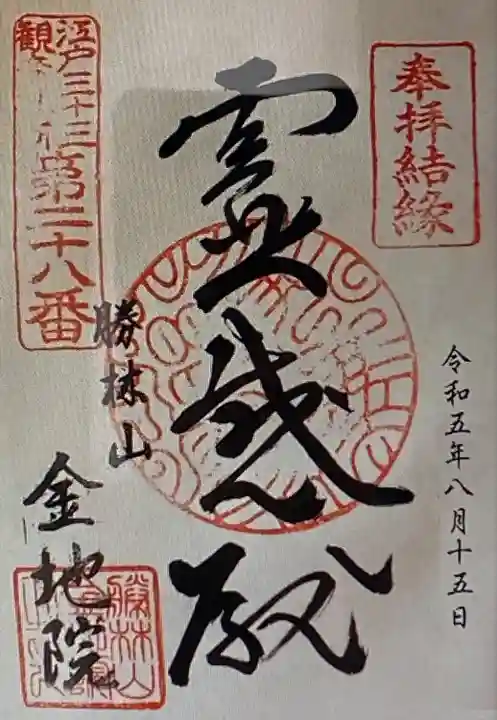 奉拝結縁
令和五年八月十五日
霊感殿
江戸三十三
観音札所第二十八番
勝林山
金地院